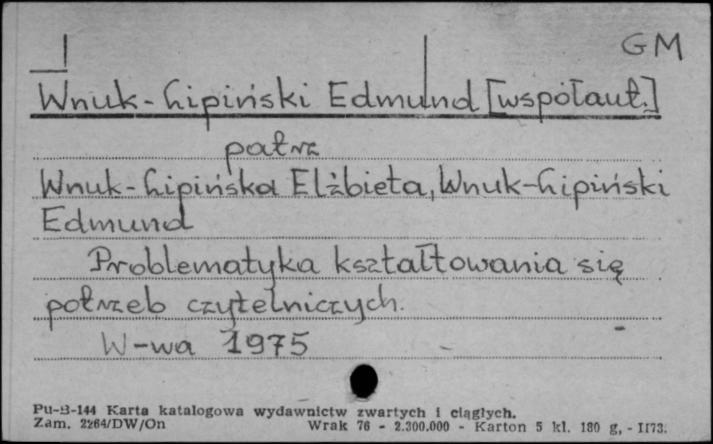 GM
Wnuk-Lipiński Edmund [współaut.]
patrz
Wnuk-Lipińska Elżbieta, Wnuk-Lipiński
Edmund
Problematyka kształtowania się
potrzeb czytelniczych.
W-wa 1975
Pu-B-144 Karta katalogowa wydawnictw zwartych i ciągłych.
Zam. 2264/DW/On Wrak 76 - 2.300.000 - Karton 5 kl. 180 g, - II73.